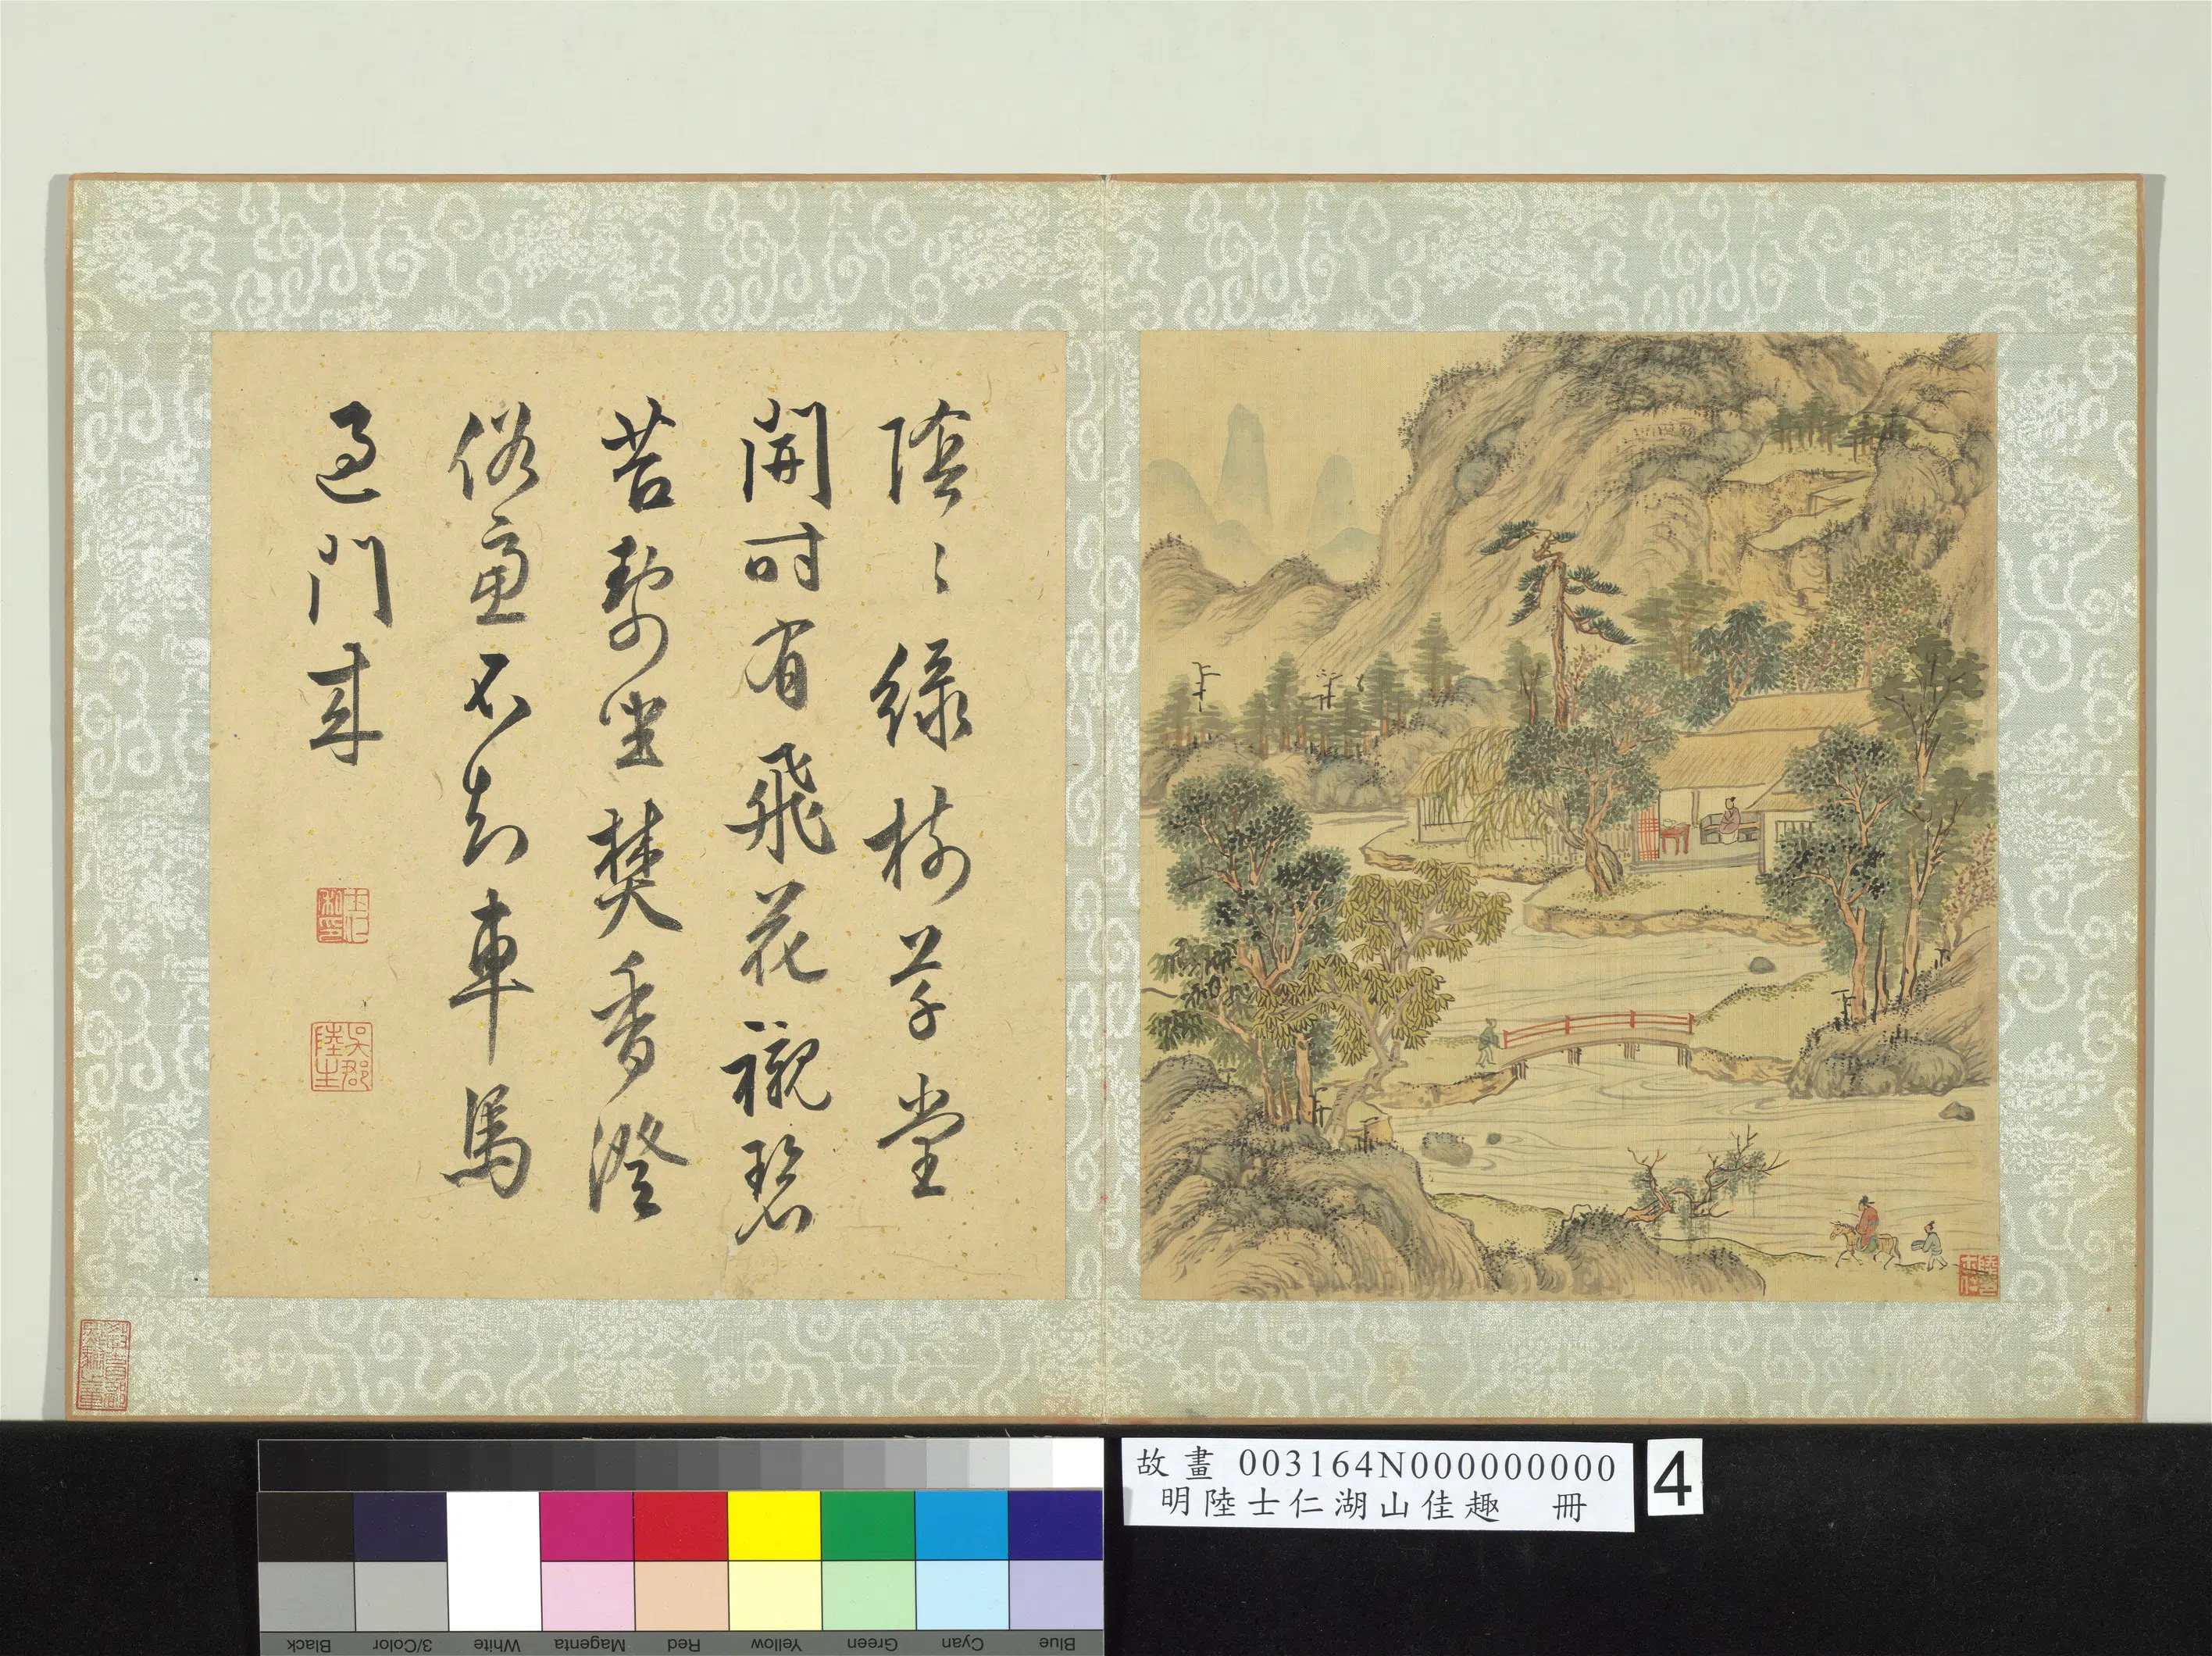 陰〻綠樹草堂
開時有飛花襯碧
苔坐焚香澄
俗慮不知車馬
過門來
士仁私印
吳郡陸生
故畫 003164N000000000
明陸士仁湖山佳趣 冊
4
Blue Cyan Green Yellow Red Magenta White 3/Color Black